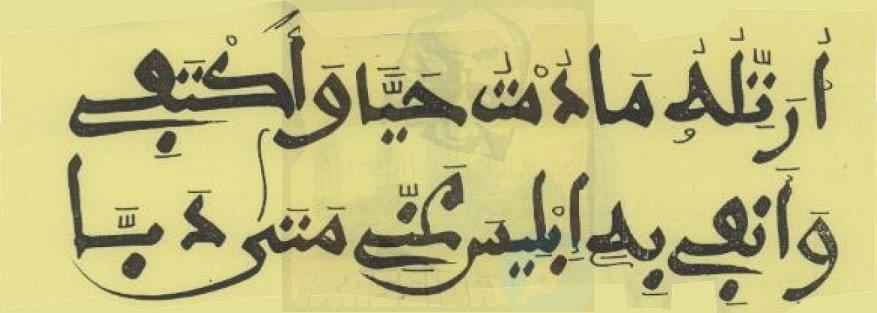 أُرَتِّلُهُ مَا دُمْتُ حَيًّا وَأَكْتَفِي
وَأَنْفِي بِهِ إِبْلِيسَ عَنِّي مَتَى دَبَّا